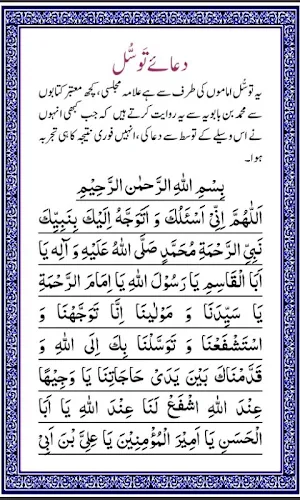 دعائے تَوسُّل
یہ توسُّل اماموں کی طرف سے ہے علامہ مجلسی، کچھ معتبر کتابوں
سے محمد بن بابویہ سے یہ روایت کرتے ہیں کہ جب کبھی انہوں
نے اس وسیلے کے توسط سے دعا کی، انہیں فوری نتیجہ کا ہی تجربہ
ہوا۔
بِسْمِ اللهِ الرَّحْمٰنِ الرَّحِيْمِ
اَللّٰهُمَّ اِنِّىْ اَسْئَلُكَ وَ اَتَوَجَّهُ اِلَيْكَ بِنَبِيِّكَ
نَبِىِّ الرَّحْمَةِ مُحَمَّدٍ صَلَّى اللهُ عَلَيْهِ وَ آلِهٖ يَا
اَبَا الْقَاسِمِ يَا رَسُوْلَ اللهِ يَا اِمَامَ الرَّحْمَةِ
يَا سَيِّدَنَا وَ مَوْلٰينَا اِنَّا تَوَجَّهْنَا وَ
اسْتَشْفَعْنَا وَ تَوَسَّلْنَا بِكَ اِلَى اللهِ وَ
قَدَّمْنَاكَ بَيْنَ يَدَىْ حَاجَاتِنَا يَا وَجِيْهًا
عِنْدَ اللهِ اشْفَعْ لَنَا عِنْدَ اللهِ يَا اَبَا
الْحَسَنِ يَا اَمِيْرَ الْمُؤْمِنِيْنَ يَا عَلِىَّ بْنَ اَبِىْ